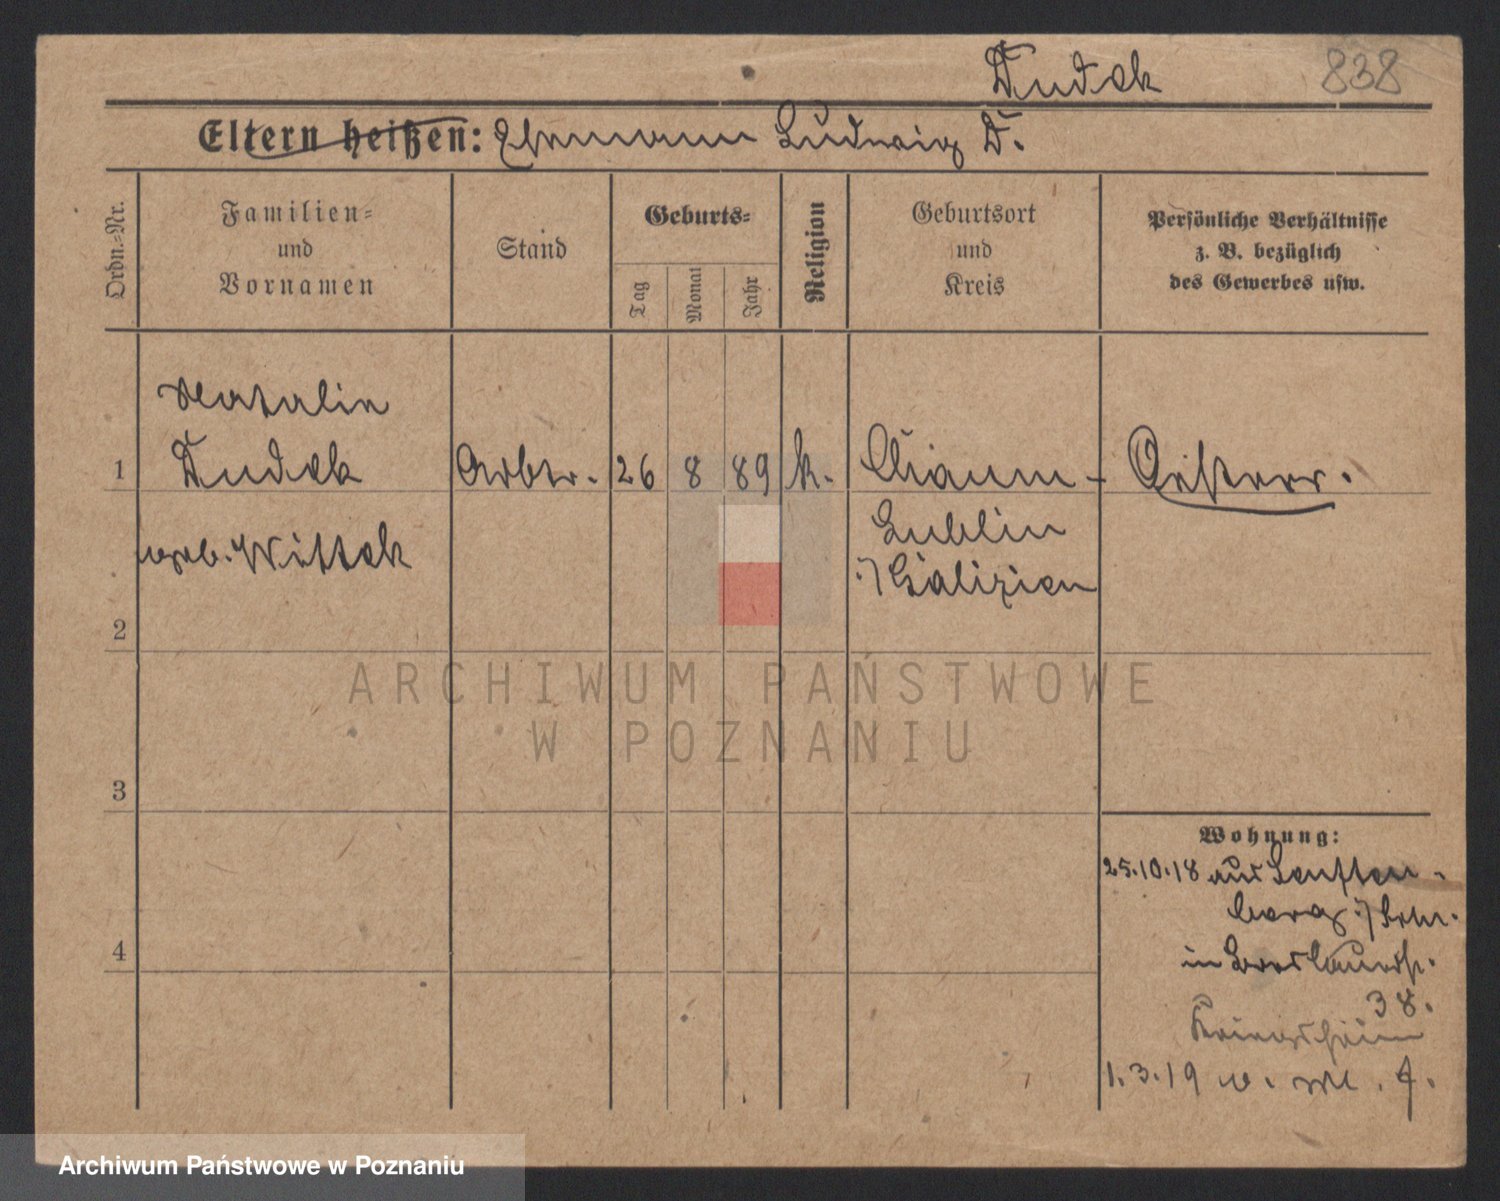 Dudek 838
Eltern heißen: Ehemann Ludwig D.
Ordn.-Nr.
Familien-
und
Vornamen
Stand
Geburts-
Tag
Monat
Jahr
Religion
Geburtsort
und
Kreis
Persönliche Verhältnisse
z. B. bezüglich
des Gewerbes usw.
Natalie
1 Dudek Arbtr. 26 8 89 k. Oesterr.
geb. Wittek Lublin
Galizien
2
3
Wohnung:
25.10.18 aus Senften-
berg
in Breslauerstr.
4
38.
1.3.19
ARCHIWUM PAŃSTWOWE
W POZNANIU
Archiwum Państwowe w Poznaniu